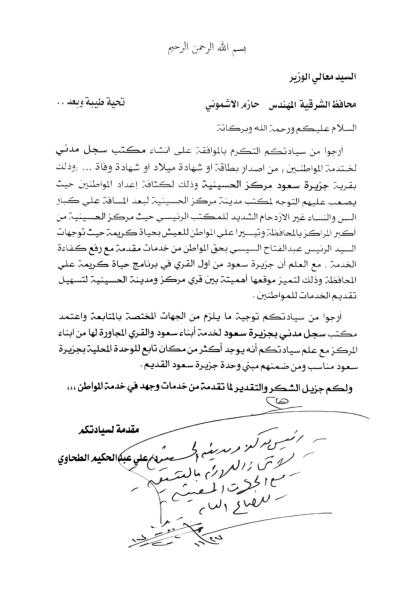 بسم الله الرحمن الرحيم
السيد معالي الوزير
محافظ الشرقية المهندس حازم الاشموني تحية طيبة وبعد ..
السلام عليكم ورحمة الله وبركاتة
ارجوا من سيادتكم التكرم بالموافقة على انشاء مكتب سجل مدني
لخدمة المواطنين , من اصدار بطاقة او شهادة ميلاد او شهادة وفاة ... .وذلك
بقرية جزيرة سعود مركز الحسينية وذلك لكثافة إعداد المواطنين حيث
يصعب عليهم التوجه لمكتب مدينة مركز الحسينية لبعد المسافة علي كبار
السن والنساء غير الازدحام الشديد للمكتب الرئيسي حيث مركز الحسينية من
اكبر المراكز بالمحافظة وتيسيرا علي المواطن للعيش بحياة كريمة حيث توجهات
السيد الرئيس عبد الفتاح السيسي بحق المواطن من خدمات مقدمة مع رفع كفاءة
الخدمة . مع العلم أن جزيرة سعود من اول القري في برنامج حياة كريمة علي
المحافظة وذلك لتميز موقعها أهميتة بين قري مركز ومدينة الحسينية لتسهيل
تقديم الخدمات للمواطنين .
ارجوا من سيادتكم توجية ما يلزم من الجهات المختصة بالمتابعة واعتمد
مكتب سجل مدني بجزيرة سعود لخدمة أبناء سعود والقري المجاورة لها من ابناء
المركز مع علم سيادتكم أنه يوجد أكثر من مكان تابع للوحدة المحلية بجزيرة
سعود مناسب ومن ضمنهم مبني وحدة جزيرة سعود القديم .
ولكم جزيل الشكر والتقدير لما تقدمة من خدمات وجهد في خدمة المواطن ,,,
هام
مقدمة لسيادتكم
علي عبدالحكيم الطحاوي
رئيس مركز ومدينة
بالتنسيق
مع الجهات المعنية